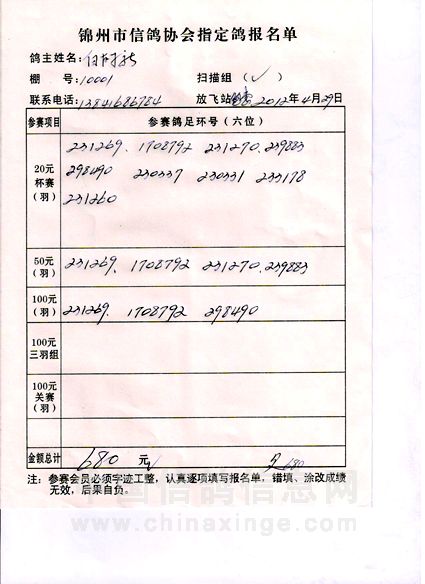 锦州市信鸽协会指定鸽报名单
鸽主姓名:
棚 号:10001 扫描组 (✓)
联系电话:13841686784 放飞站 2012年4月29日
参赛项目 参赛鸽足环号(六位)
20元杯赛(羽) 231269、1708792 231270.239883
298490 230337 230331 233178
231260
50元(羽) 231269、1708792 231270.239883
100元(羽) 231269、1708792 298490
100元三羽组
100元关赛(羽)
金额总计 680 元 680
注:参赛会员必须字迹工整,认真逐项填写报名单,错填、涂改成绩
无效,后果自负。
中国信鸽信息网
www.chinaxinge.com